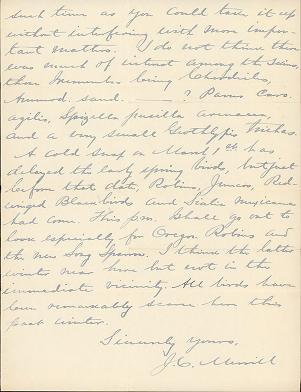 such time as you could take it up
without interfering with more impor-
tant matters. I do not think there
was much of interest among the skins,
those I remember being Chordeiles,
Ammod. sand. ? Parus Caro.
agilis, Spizella pusilla arenacea,
and a very small Geothlypis trichas.
A cold snap on March 1st has
delayed the early spring birds, but just
before that date, Robins, Juncos, Red-
winged Blackbirds and Sialia mexicana
had come. This p.m. shall go out to
look especially for Oregon Robins and
the new Song Sparrow. I think the latter
winters near here but not in the
immediate vicinity. All birds have
been remarkably scarce here this
past winter.
Sincerely yours,
J. C. Merrill